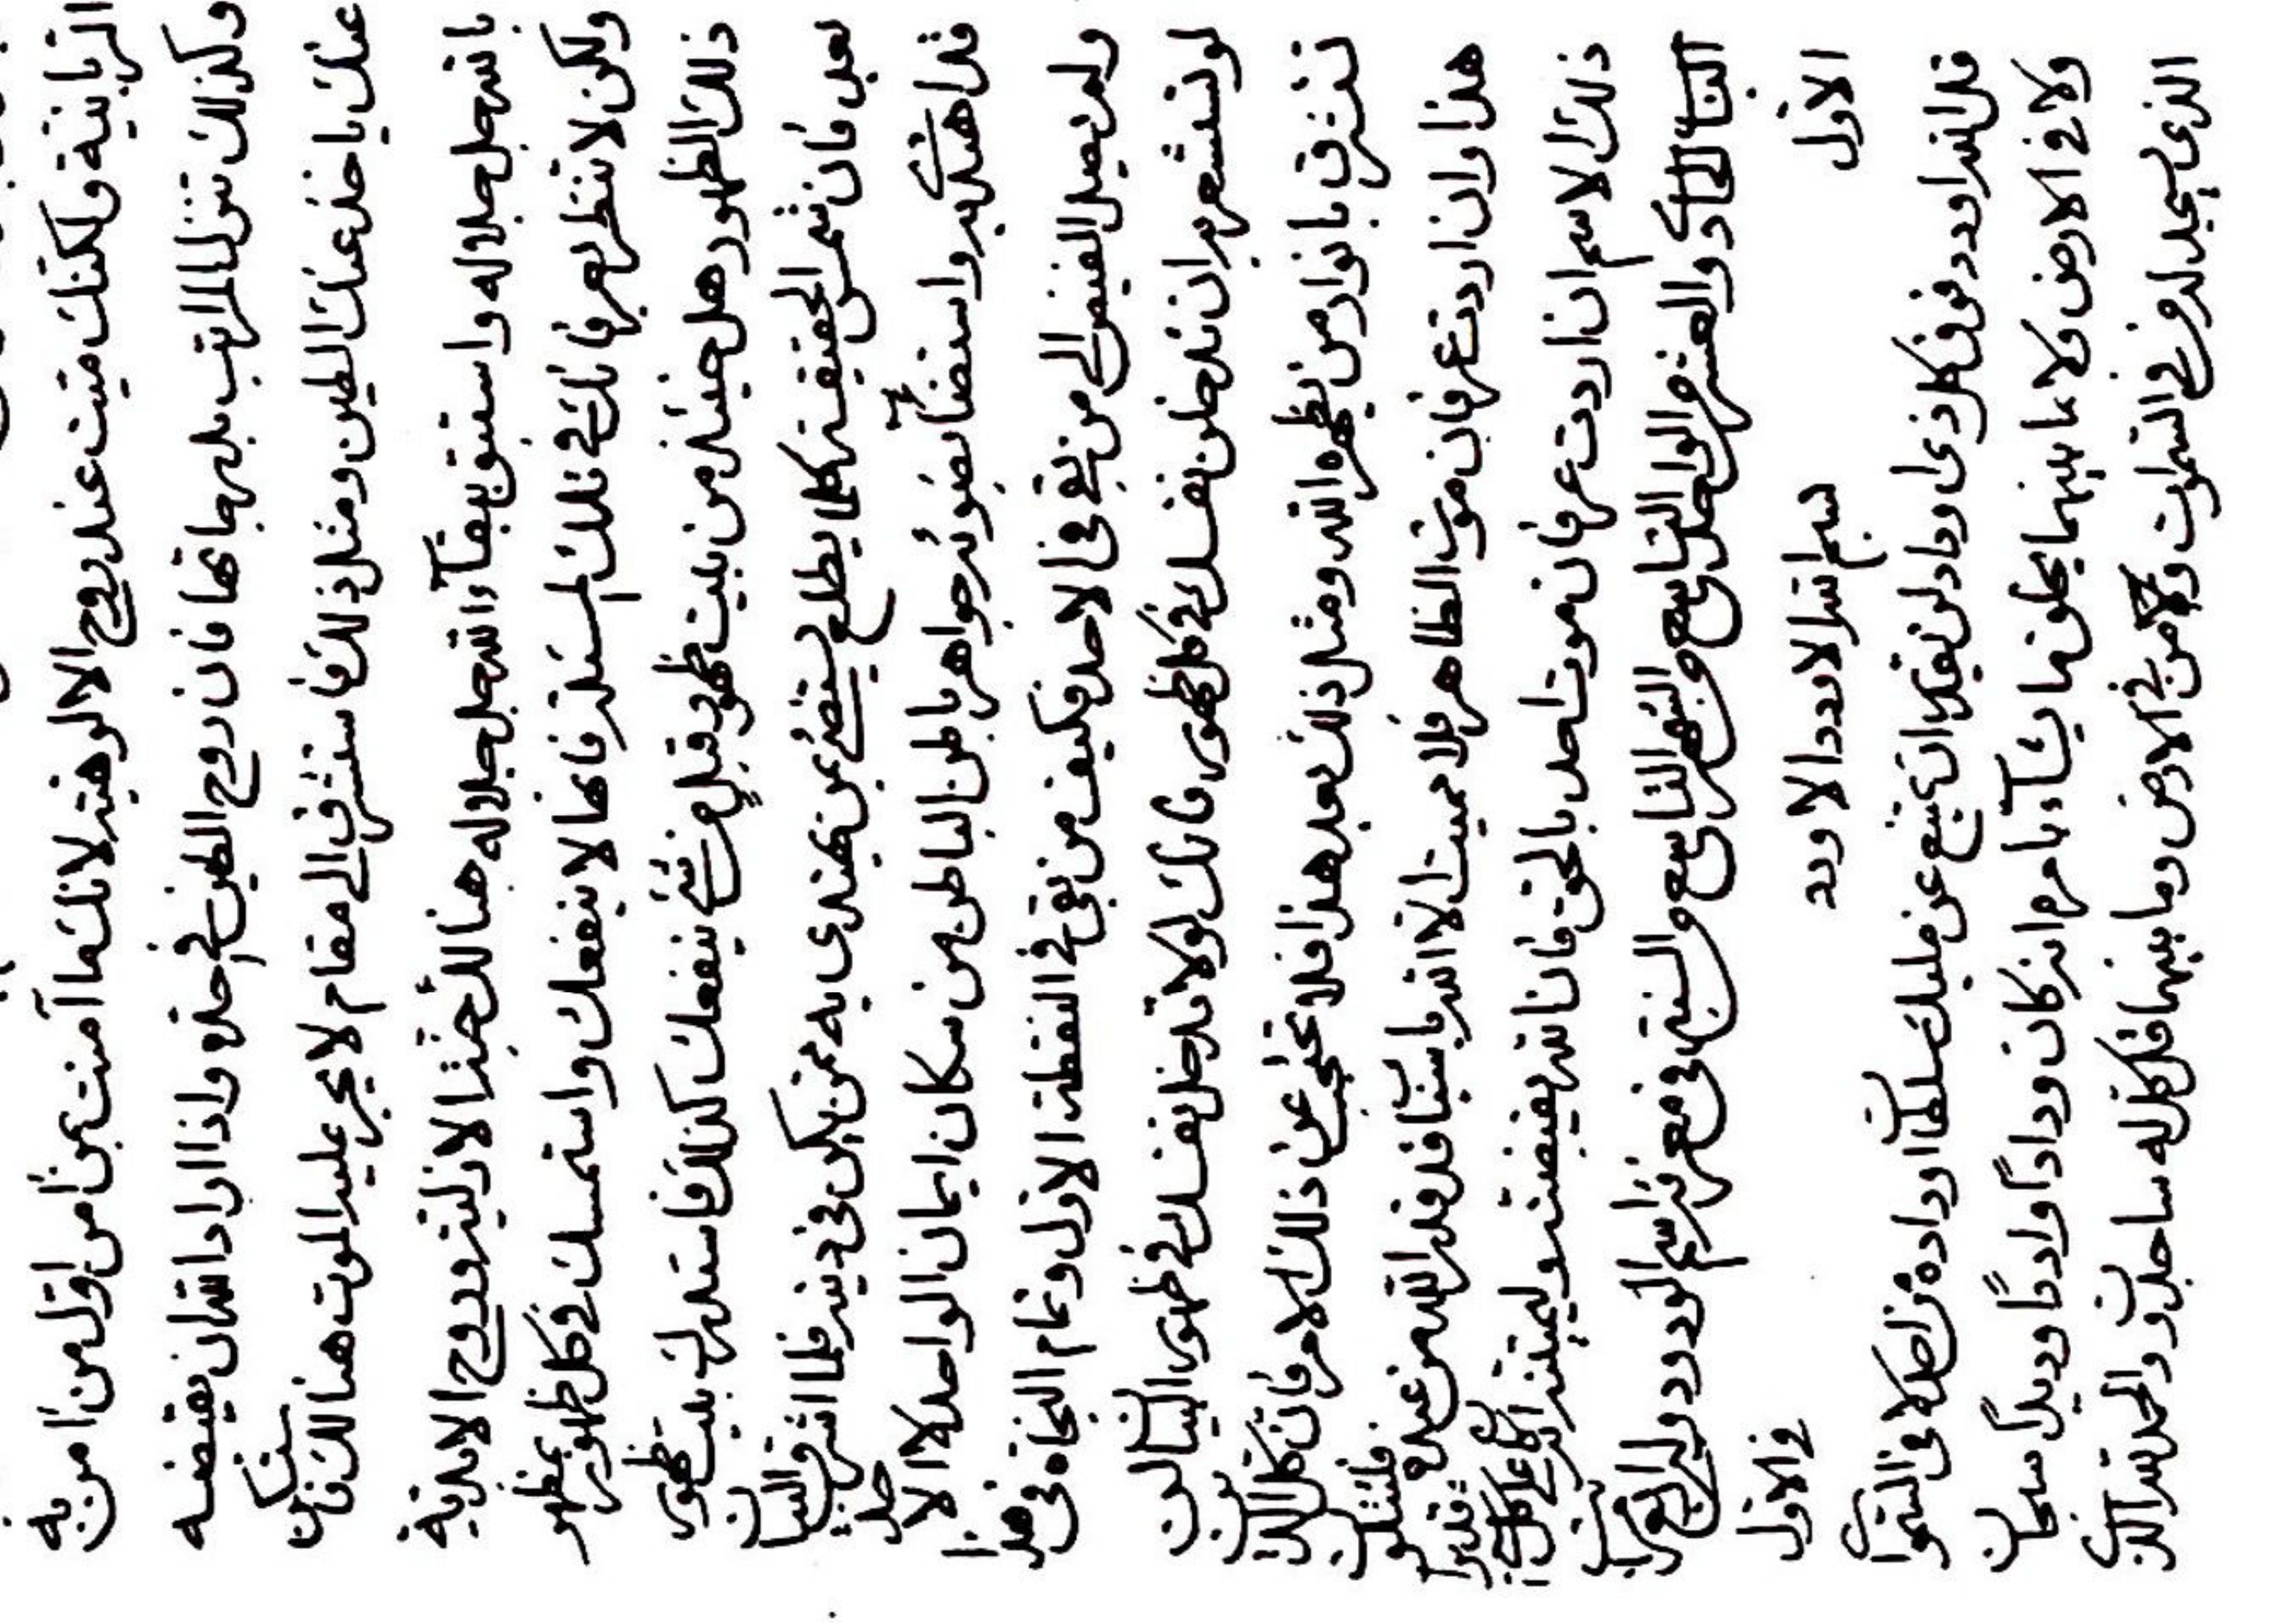 الربانية ولكنك ميت عند روح الالوهية لانك ما آمنت بمن امن اول من امن به
وكذلك تنزل المراتب بدرجاتها فان روح الطين في حده واذا اراد الله ان يقبضه
عنك ياخذ عنك الطين ومثل ذلك فاسترق الى مقام لا يجر عليه الموت هنالك فانك
بالله جل جلاله واستبق ببقآء الله جل جلاله هنالك حبذا الازلية وروح الابدية
ولكن لا تنظر بعرفانك في تلك المسئلة فانها لا ينفعك واستمسك في كل ظهور بمظهر
ذلك الظهور هل حينئذ من بيت ظهور قبل من شئ ينفعك كذلك فاستدل بيت ظهور
بعد فان شمس الحقيقة كلما يطلع يستضئ من يهتدى به من يكن في دينه فلما اشرق البيان
قد اهتدى به واستضآء بضوئه جواهر باطن الباطن من سكان ايمان الواحد الا
ولم يصل الفيض الى من بقي في الاحد فكيف من بقي في النقطة الاول وتمام النجاة في هذا
لو تستشعرون ان تدخلن نفسك في كل ظهور فانك لولا تدخل نفسك في ظهور البيان لن
تشرق بانوار من يظهره الله ومثل ذلك بعد هذا فلا تحتجبن عن ذلك الامر فان كل الدين
هذا وان اردت عرفان موت الظاهر فلا مميت الا الله باسبابا قد قدر الله من عنده فلتسئلن
ذلك الاسم ان اردت عرفان موت احد بالحق فان الله يقبضنه وليميتنه انه كان على كل شئ قديرا
الباب الثالث والعشر من الواحد التاسع من الشهر التاسع من السنة في معرفة اسم الودود وله اربع مراتب
الاول بسم الله الاودد الاودد في الاول
قل الله اودد فوق كل ذى وداد لن يقدر ان يمتنع عن مليك سلطان وداده من احد لا في السموات
ولا في الارض ولا ما بينهما يخلق ما يشآء بامره انه كان ودادا وادا وديدا سبحان
الذى يسجد له من في السموات ومن في الارض وما بينهما قل كل له ساجدون والحمد لله الذى